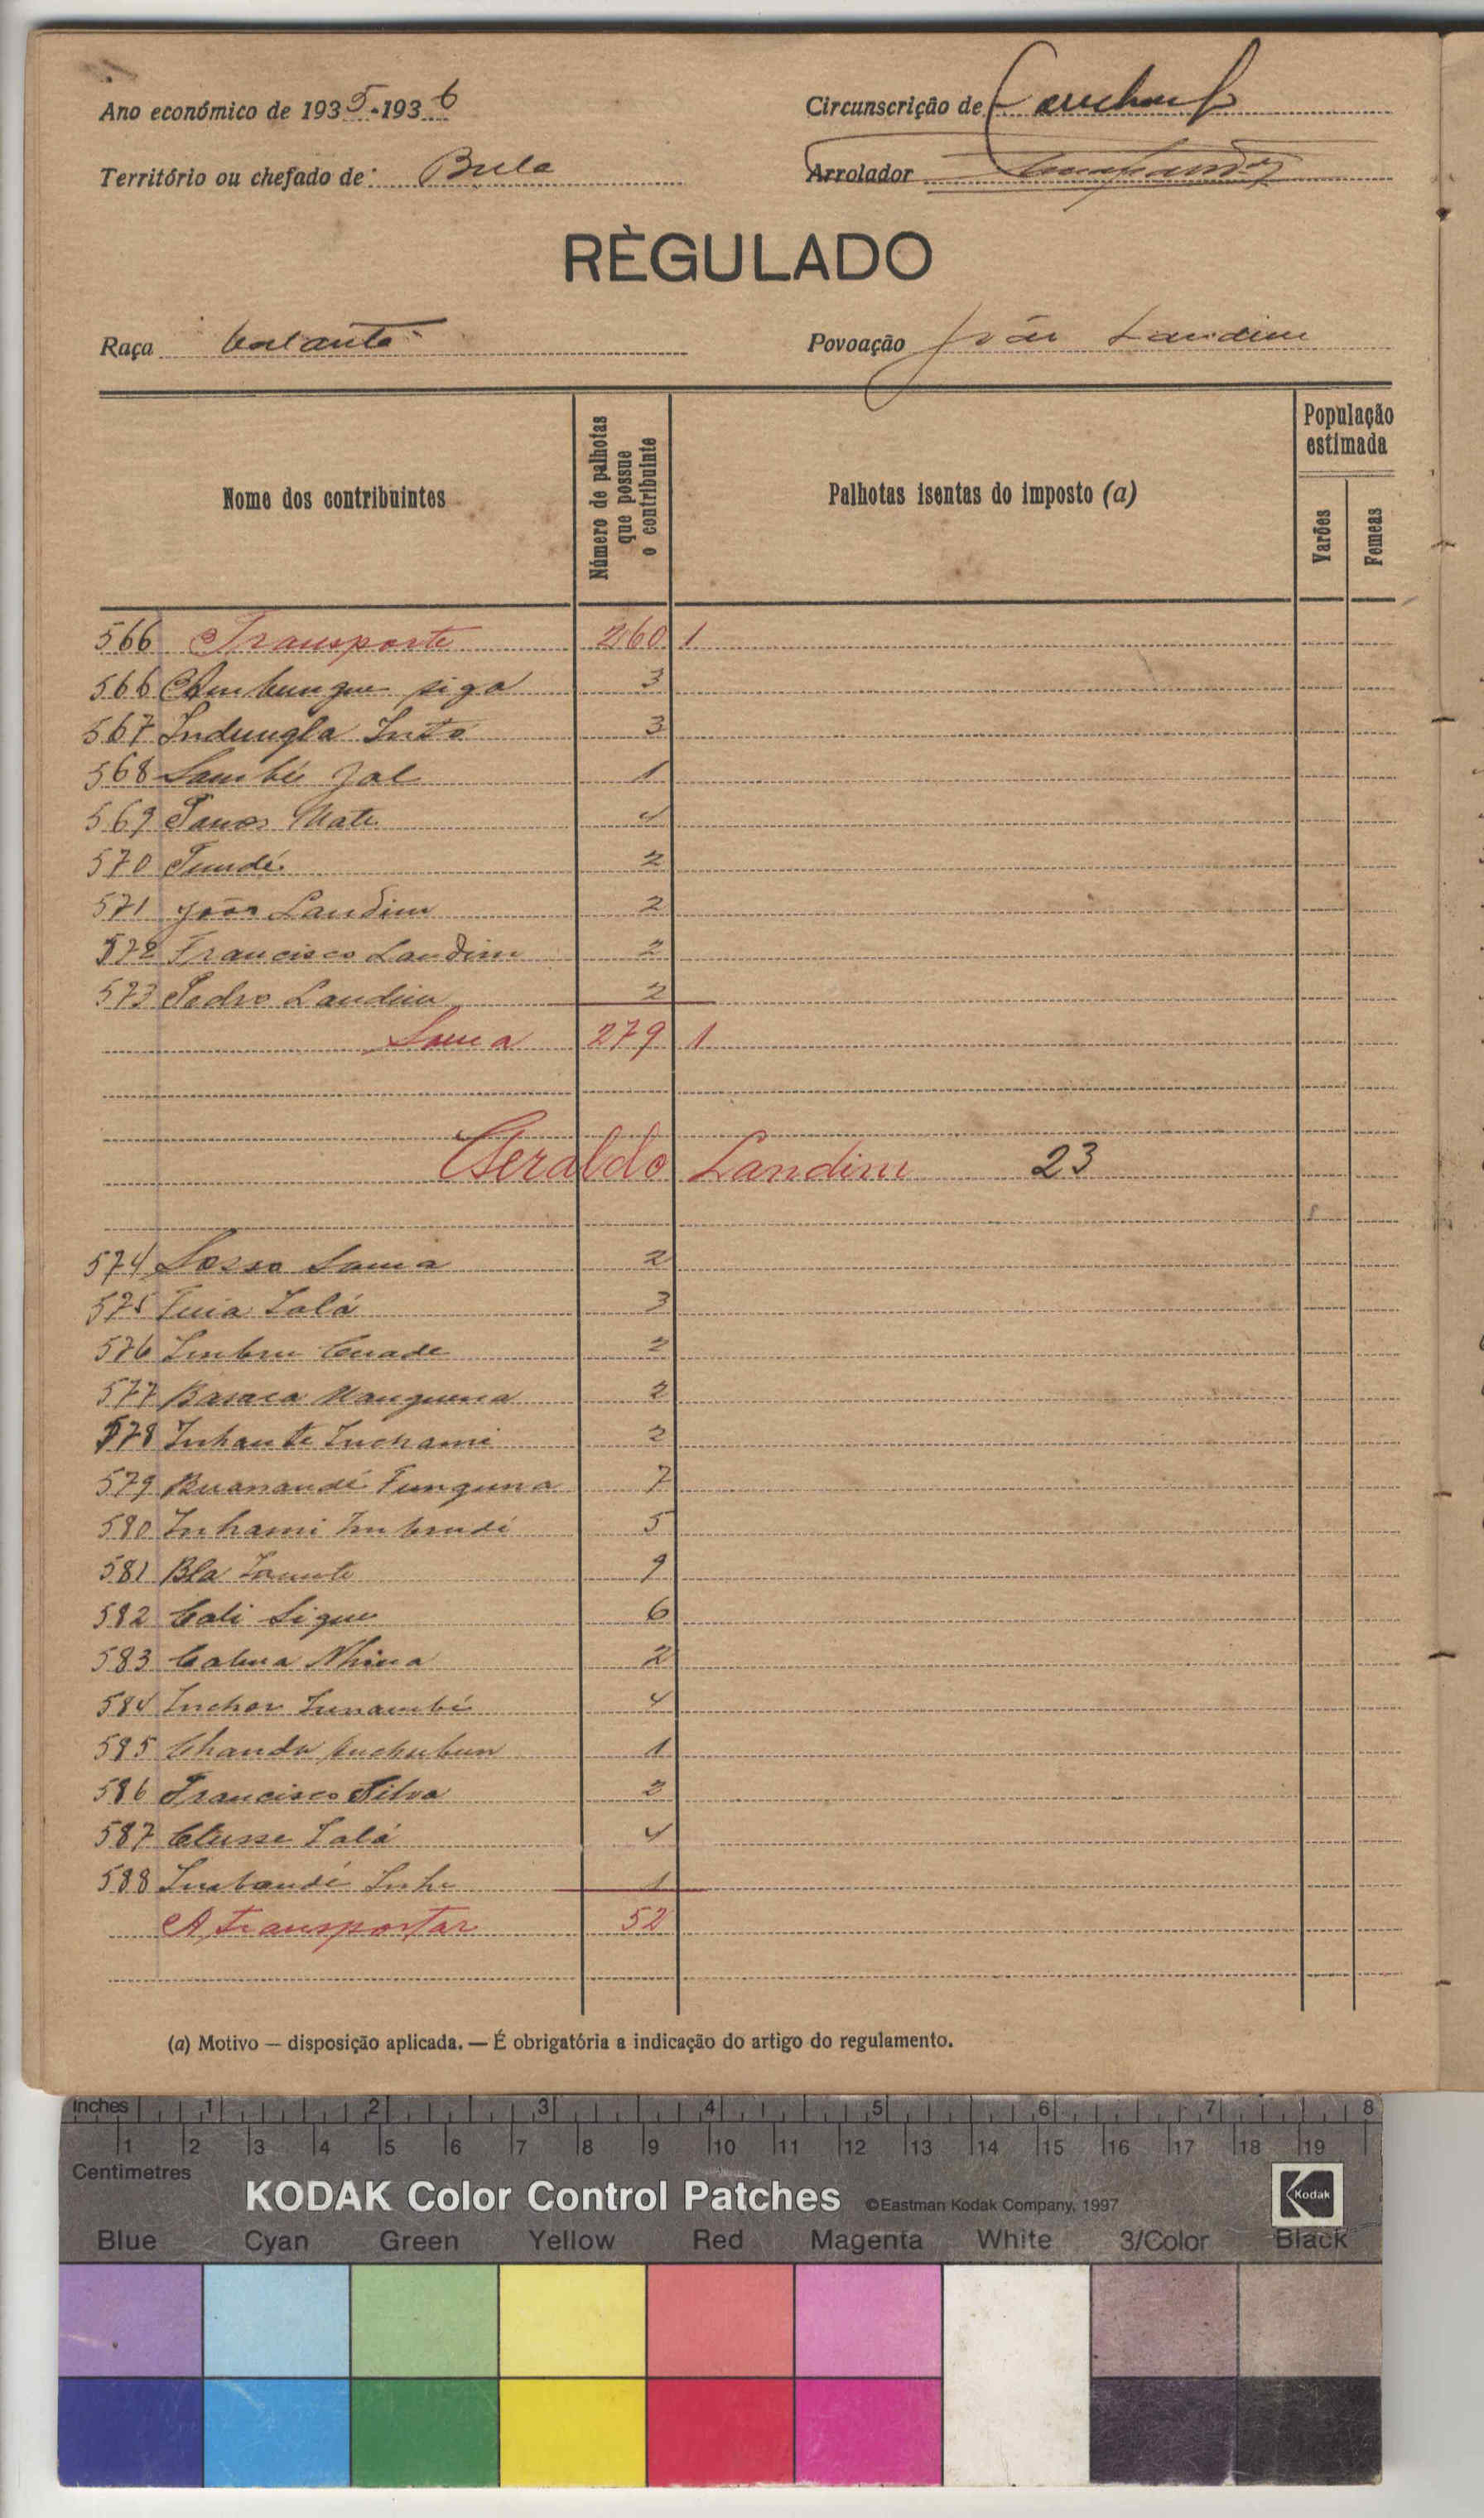 Ano económico de 1935-1936
Circunscrição de
Território ou chefado de: Bula
Arrolador
RÈGULADO
Raça Balanta
Povoação João Landim
Nome dos contribuintes
Número de palhotas que possue o contribuinte
Palhotas isentas do imposto (a)
População estimada
Varões
Femeas
566 Transporte 260 1
566 siga 3
567 Indungla Into 3
568 Sambú Jal 1
569 Mate 4
570 Tundé 2
571 João Landim 2
572 Francisco Landim 2
573 Pedro Landim 2
Soma 279 1
Geraldo Landim 23
574 Sosso Sama 2
575 Tuia Ialá 3
576 Imbru Cuade 2
577 2
578 Inhante Inchami 2
579 Funguna 7
580 Inhami Imbundé 5
581 Bla 9
582 Cali Sigue 6
583 Nhina 2
584 Inchor 4
585 1
586 Francisco Silva 2
587 Clusse Ialá 4
588 1
A transportar 52
(a) Motivo — disposição aplicada. — É obrigatória a indicação do artigo do regulamento.
Inches 1 2 3 4 5 6 7 8
1 2 3 4 5 6 7 8 9 10 11 12 13 14 15 16 17 18 19
Centimetres
KODAK Color Control Patches ©Eastman Kodak Company, 1997 Kodak
Blue Cyan Green Yellow Red Magenta White 3/Color Black